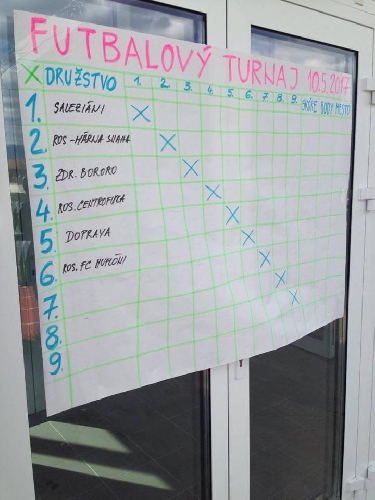 FUTBALOVÝ TURNAJ 10.5.2017
X DRUŽSTVO 1. 2. 3. 4. 5. 6. 7. 8. 9. SKÓRE BODY MIESTO
1. SALEZIÁNI X
2. ROS - MÁRNA SNAHA X
3. ZDR. BORORO X
4. ROS. CENTROFUKA X
5. DOPRAVA X
6. ROS. FC X
7. X
8. X
9. X